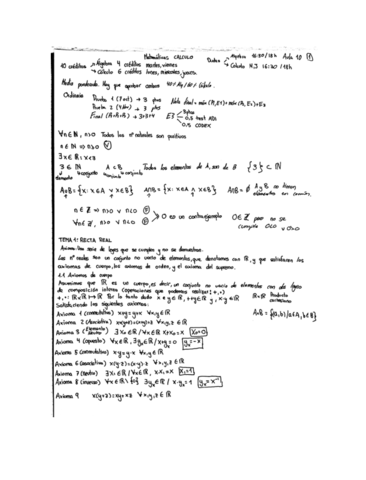 Matemáticas CÁLCULO
10 créditos Álgebra 4 créditos martes, viernes
Cálculo 6 créditos lunes, miércoles, jueves.
Dudas Álgebra 16:30 / 18h Aula 10 ①
Cálculo 16:30 / 18h
Media ponderada. Hay que aprobar ambas
Ordinaria
Prueba 1 → 3 ptos
Prueba 2 → 3 ptos
Final
∀n∈ℕ, n>0 Todos los nº naturales son positivos
n∈ℕ ⇒ n>0
∃x∈ℝ : x<3
3∈ℕ A⊂B Todos los elementos de A, son de B {3}⊂ℕ
elemento conjunto conjunto conjunto
A∪B={x: x∈A ∨ x∈B} A∩B={x: x∈A ∧ x∈B} A∩B=∅ A y B no tienen elementos en común.
n∈ℤ ⇒ n>0 ∨ n<0
∀n∈ℤ, n>0 ∨ n<0
0 es un contraejemplo 0∈ℤ pero no se cumple 0<0 ∨ 0>0
TEMA 1: RECTA REAL
Axioma: Una serie de leyes que se cumplen y no se demuestran.
Los nº reales son un conjunto no vacío de elementos, que denotamos con ℝ, y que satisfacen los
axiomas de cuerpo, los axiomas de orden, y el axioma del supremo.
1.1 Axiomas de cuerpo
Asumimos que ℝ es un cuerpo, es decir, un conjunto no vacío de elementos con dos leyes
de composición interna (operaciones que podemos realizar) +, ·
+, · : ℝxℝ → ℝ Por lo tanto dado x e y∈ℝ, x+y∈ℝ y, x·y∈ℝ
ℝxℝ Producto cartesiano
Satisfaciendo los siguientes axiomas:
AxB={(a,b)/a∈A, b∈B}
Axioma 1 (conmutativa) x+y=y+x ∀x,y∈ℝ
Axioma 2 (Asociativa) x+(y+z)=(x+y)+z ∀x,y,z∈ℝ
Axioma 3 (Elemento neutro) ∃x₀∈ℝ / ∀x∈ℝ x+x₀=x x₀=0
Axioma 4 (opuesto) ∀x∈ℝ, ∃yₓ∈ℝ / x+yₓ=0 yₓ=-x
Axioma 5 (conmutativa) x·y=y·x ∀x,y∈ℝ
Axioma 6 (asociativa) x(y·z)=(x·y)·z ∀x,y,z∈ℝ
Axioma 7 (neutro) ∃x₁∈ℝ / ∀x∈ℝ, x·x₁=x x₁=1
Axioma 8 (inverso) ∀x∈ℝ\{0} ∃yₓ∈ℝ / x·yₓ=1 yₓ=x⁻¹
Axioma 9 x(y+z)=xy+xz ∀x,y,z∈ℝ